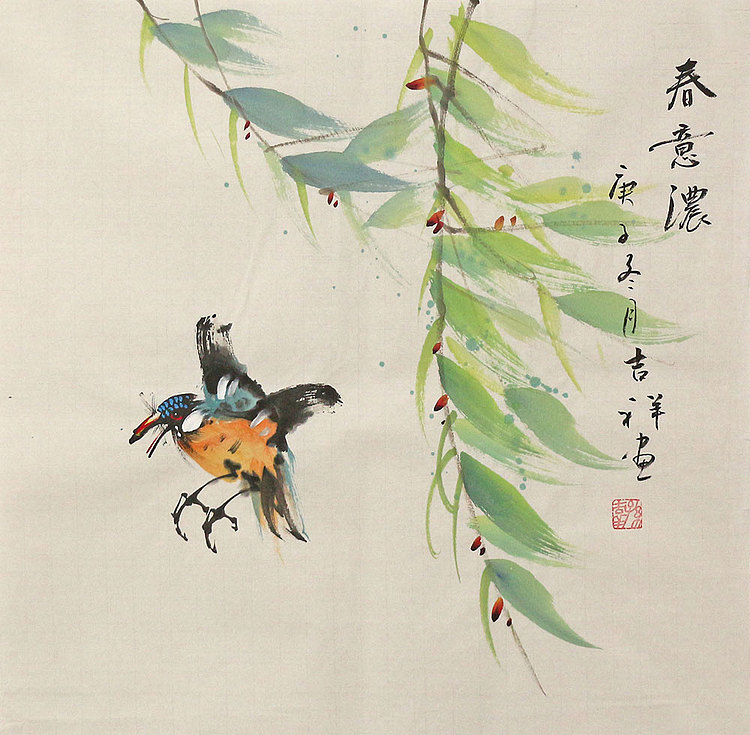 春意濃
庚子冬月吉祥画